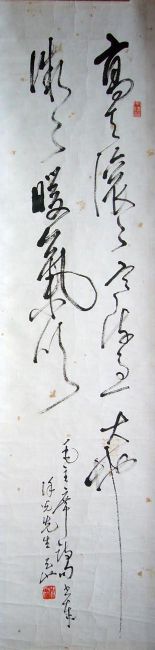 高天滚〻寒流急大地
微〻暖氣吹
毛主席詩句
先生